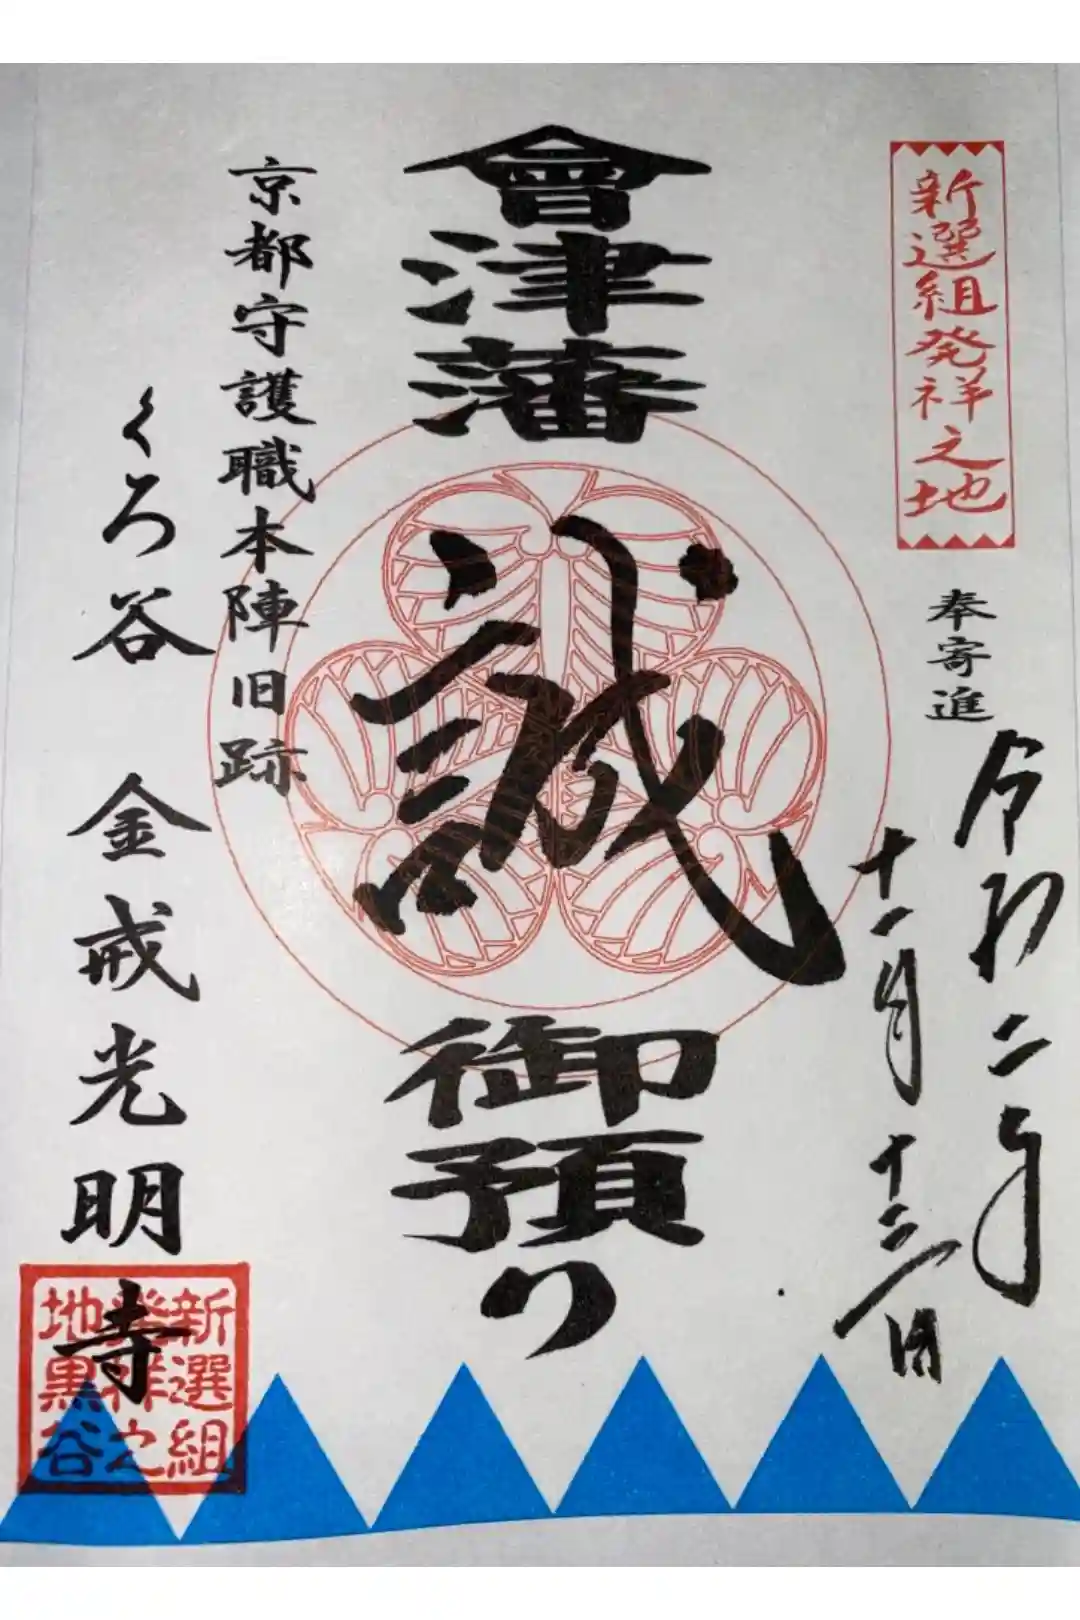 新選組発祥之地
奉寄進
令和二年
十一月十二日
會津藩
誠
御預り
京都守護職本陣旧跡
くろ谷 金戒光明寺
新選組
発祥之
地黒谷